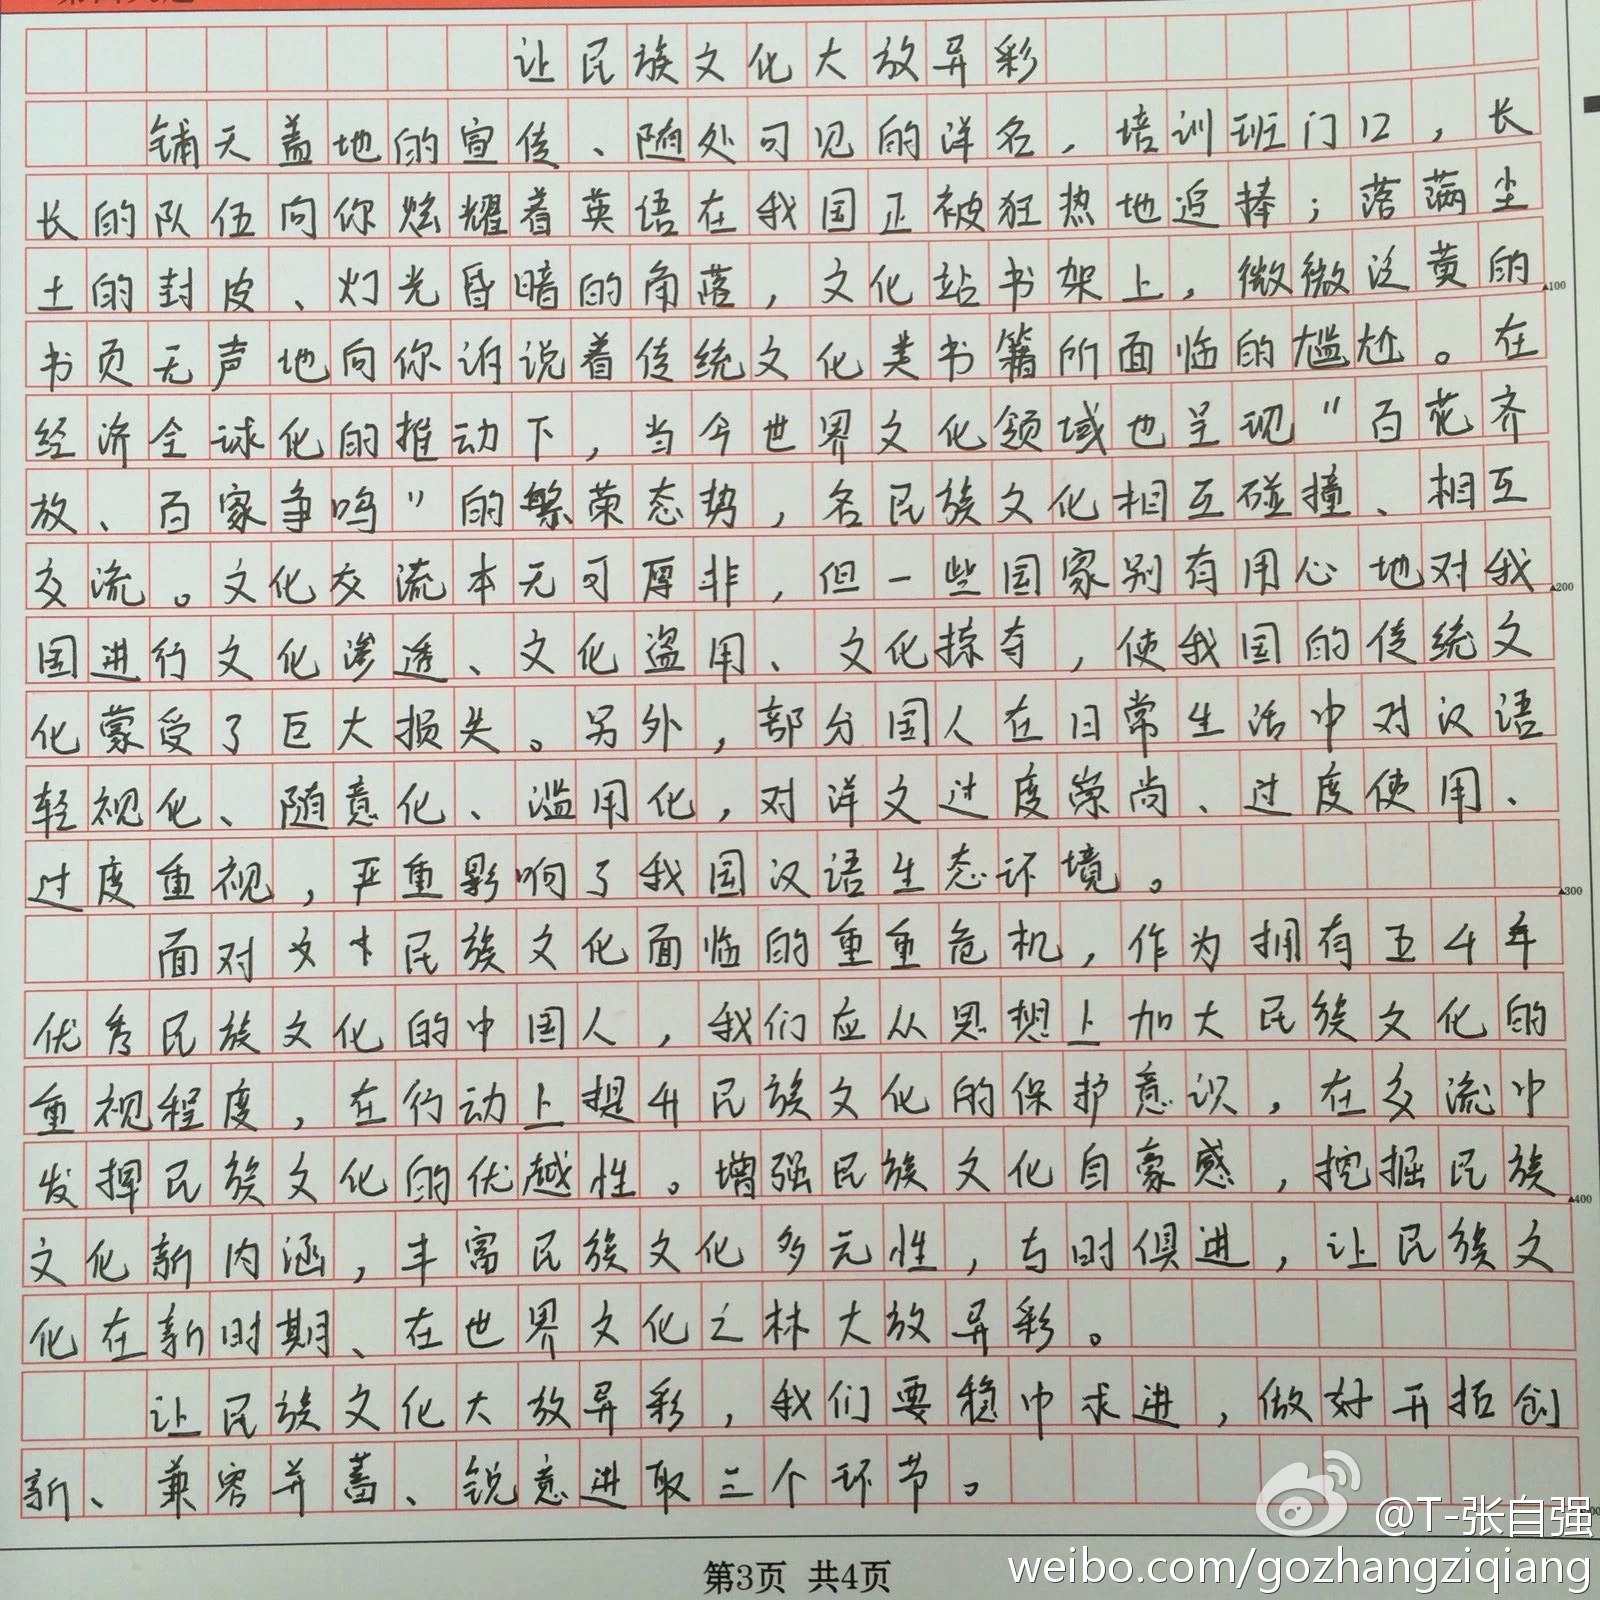 让民族文化大放异彩
铺天盖地的宣传、随处可见的洋名，培训班门口，长
长的队伍向你炫耀着英语在我国正被狂热地追捧；落满尘
土的封皮、灯光昏暗的角落，文化站书架上，微微泛黄的
100
书页无声地向你诉说着传统文化类书籍所面临的尴尬。在
经济全球化的推动下，当今世界文化领域也呈现"百花齐
放、百家争鸣"的繁荣态势，各民族文化相互碰撞、相互
交流。文化交流本无可厚非，但一些国家别有用心地对我
200
国进行文化渗透、文化盗用、文化掠夺，使我国的传统文
化蒙受了巨大损失。另外，部分国人在日常生活中对汉语
轻视化、随意化、滥用化，对洋文过度崇尚、过度使用、
过度重视，严重影响了我国汉语生态环境。
300
面对民族文化面临的重重危机，作为拥有五千年
优秀民族文化的中国人，我们应从思想上加大民族文化的
重视程度，在行动上提升民族文化的保护意识，在交流中
发挥民族文化的优越性。增强民族文化自豪感，挖掘民族
400
文化新内涵，丰富民族文化多元性，与时俱进，让民族文
化在新时期、在世界文化之林大放异彩。
让民族文化大放异彩，我们要稳中求进，做好开拓创
新、兼容并蓄、锐意进取三个环节。
@T-张自强
weibo.com/gozhangziqiang
第3页 共4页